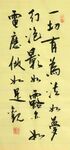 一切有為法如夢
幻泡影如露亦如
電應作如是觀